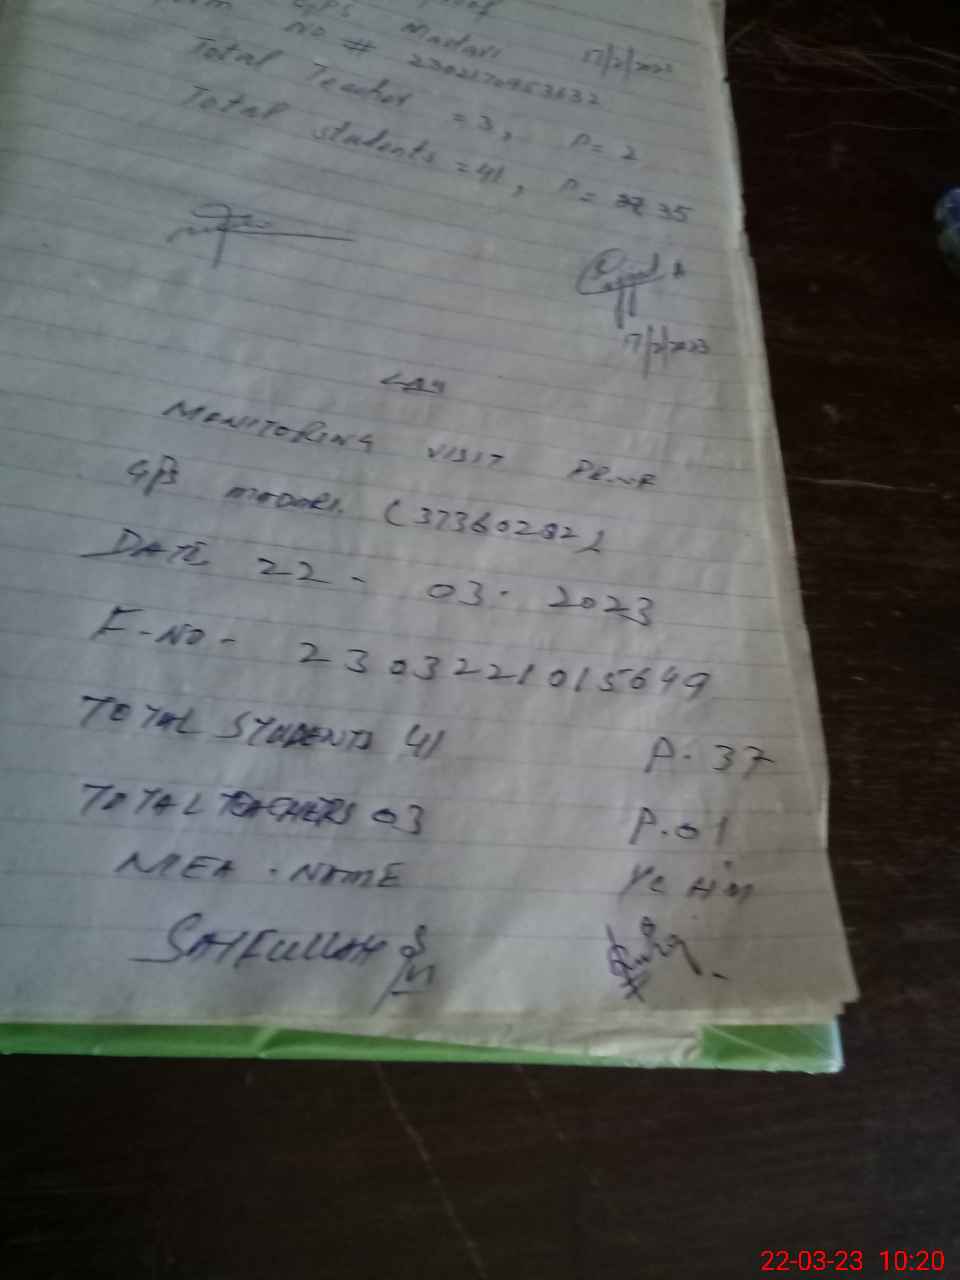 GPS Madari 17/2/2023
No # 2302170953632
Total Teacher = 3, P = 2
Total students = 41, P = 35
17/2/2023
MONITORING VISIT PROOF
GPS MADARI. (37360282)
DATE 22 - 03 - 2023
F-NO - 2303221015649
TOTAL STUDENTS 41 P. 37
TOTAL TEACHERS 03 P. 01
MEA . NAME
SAIFULLAH
22-03-23 10:20